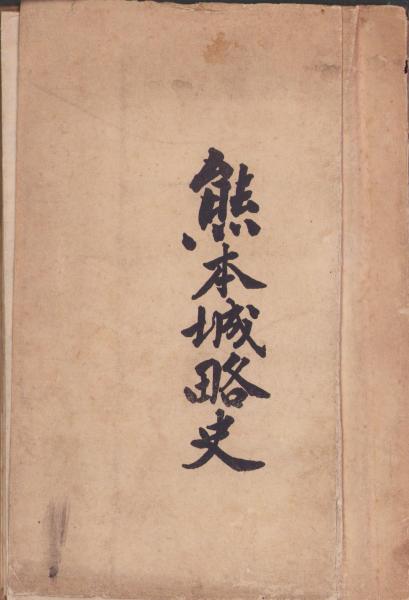 熊本城略史